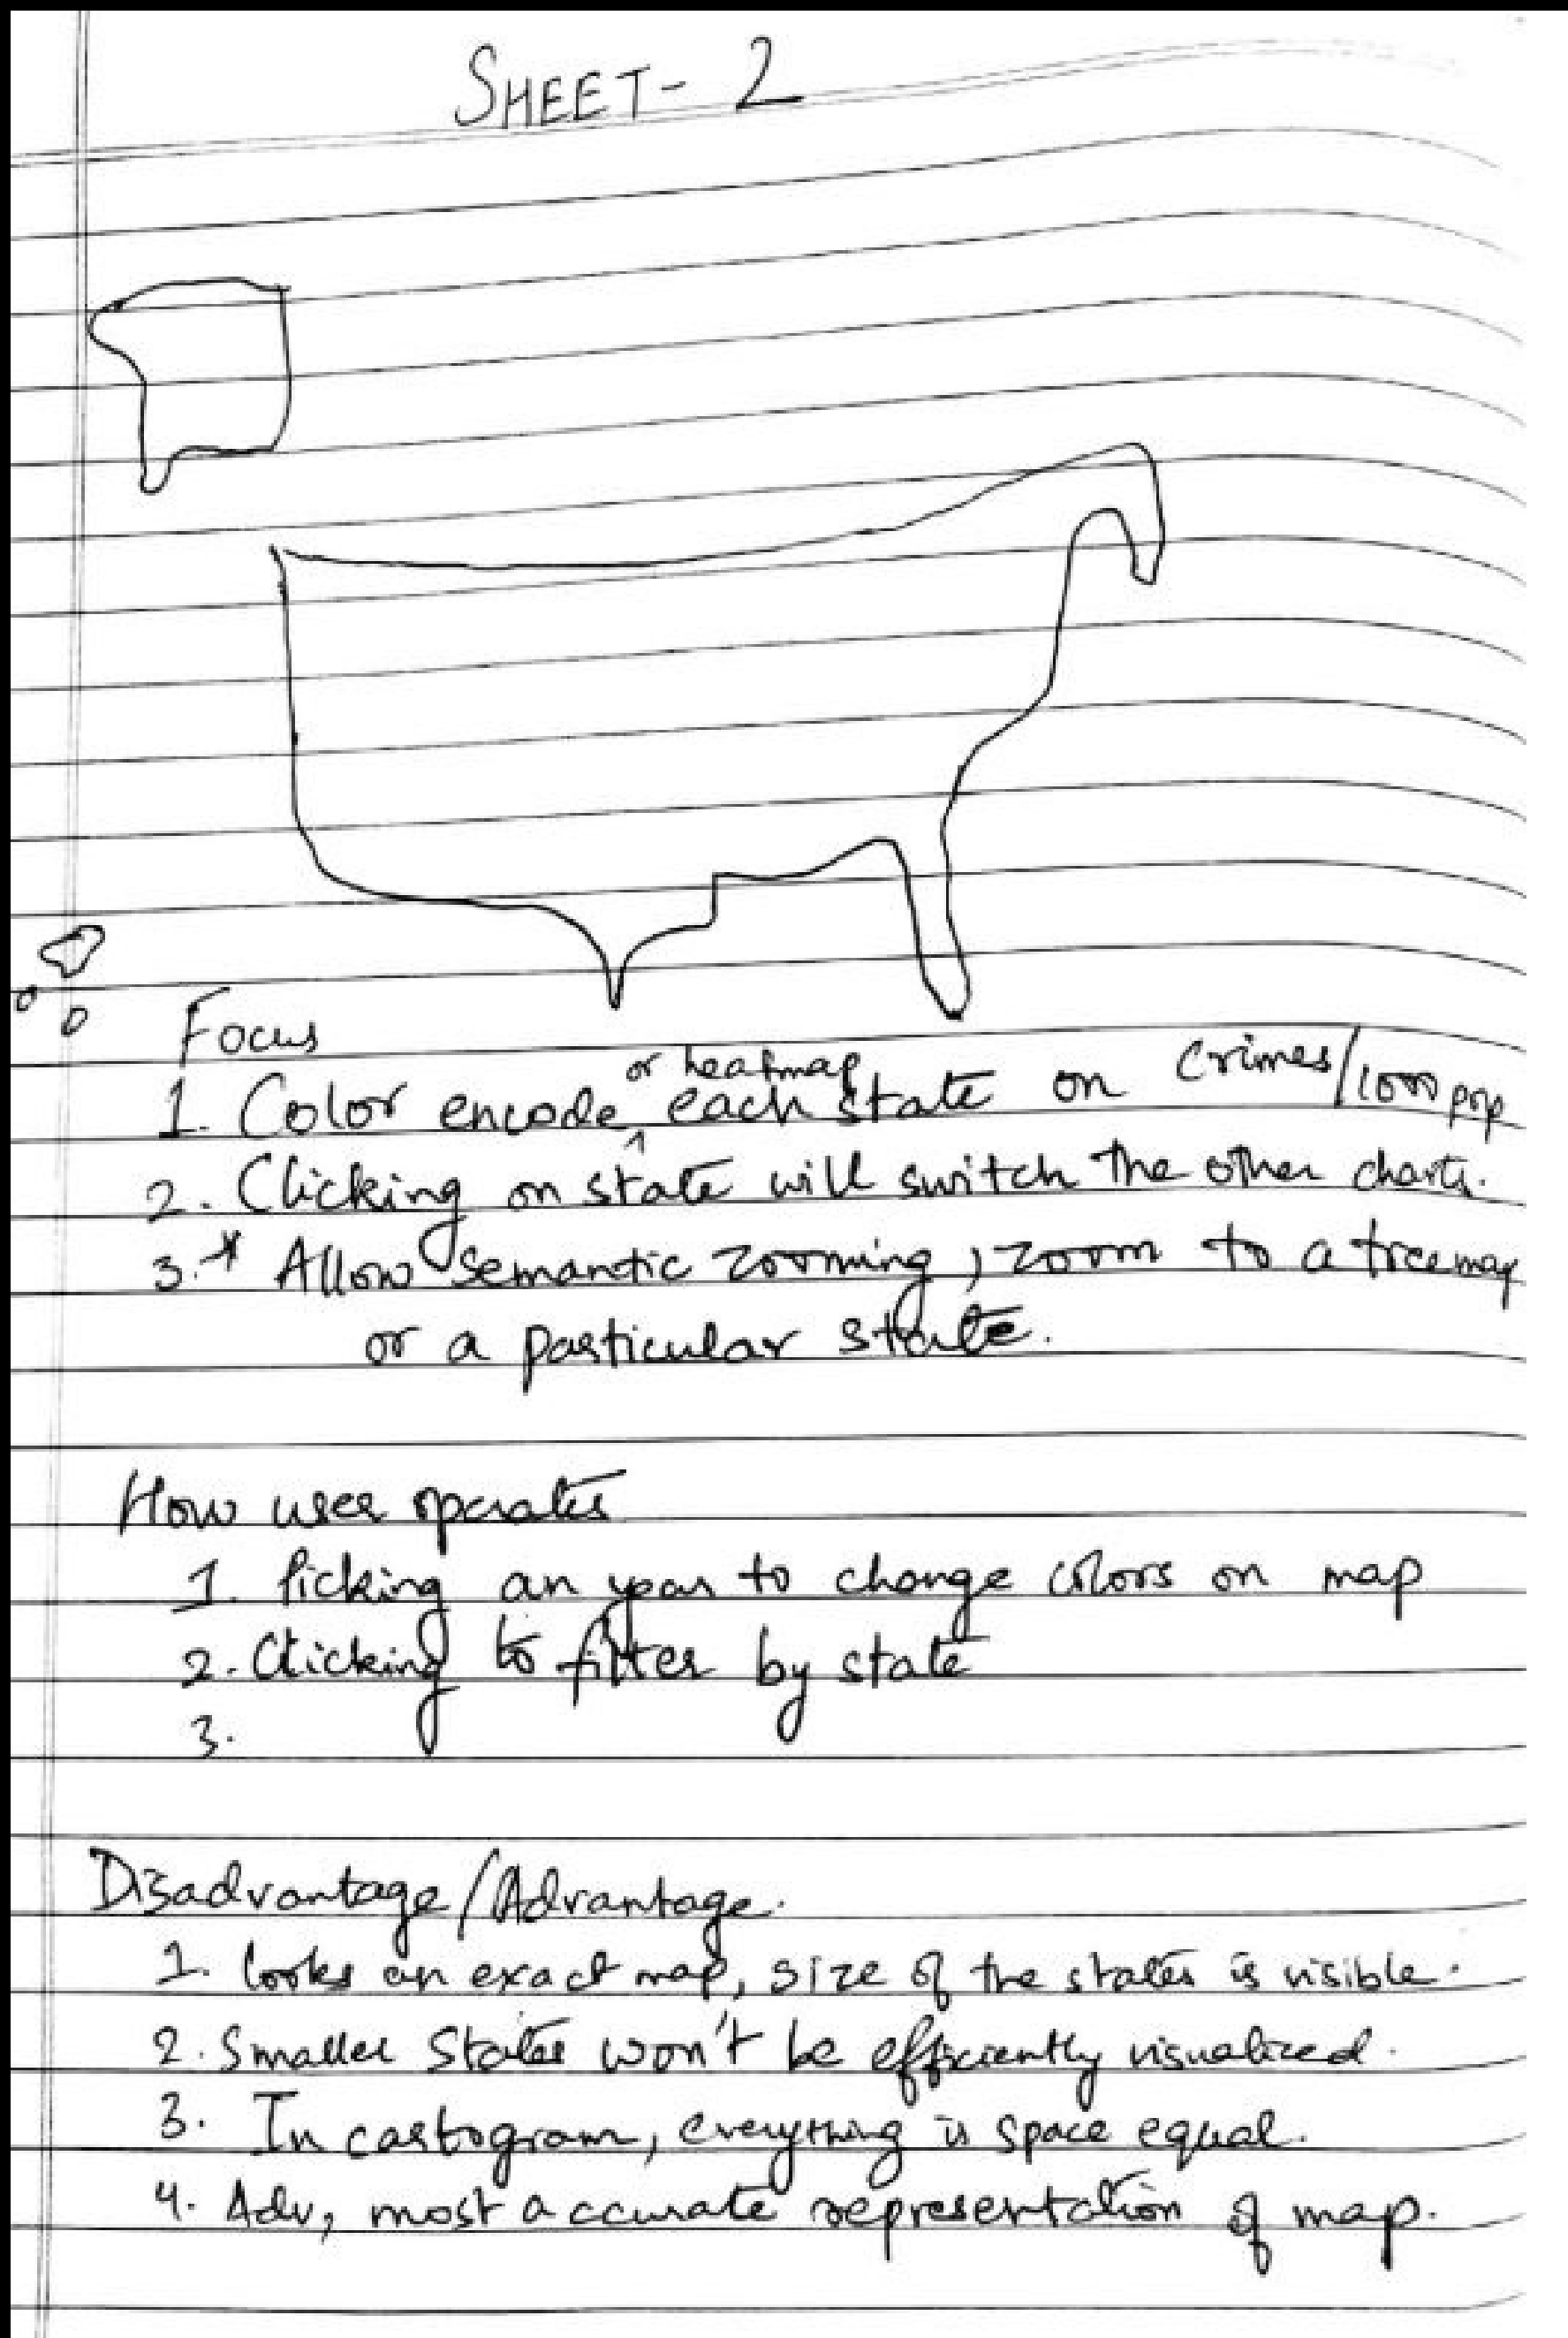 SHEET- 2
Focus
or heatmap
1. Color encode ^ each state on Crimes/1000 pop
2. Clicking on state will switch the other charts.
3.* Allow semantic zooming, zoom to a treemap
or a particular state.
How user operates
1. Picking an year to change colors on map
2. Clicking to filter by state
3.
Disadvantage/Advantage.
1. looks an exact map, size of the states is visible.
2. Smaller States won't be efficiently visualized.
3. In cartogram, everything is space equal.
4. Adv, most accurate representation of map.